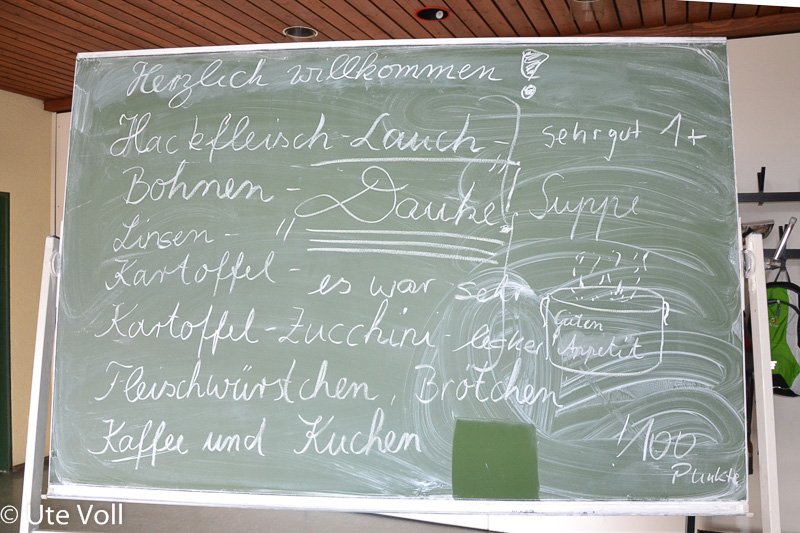 Herzlich willkommen!
Hackfleisch-Lauch- sehr gut 1+
Bohnen - "Danke! Suppe
Linsen - "
Kartoffel - es war sehr
Kartoffel-Zucchini - lecker
Guten
Appetit
Fleischwürstchen, Brötchen
Kaffee und Kuchen
100
Punkte
© Ute Voll